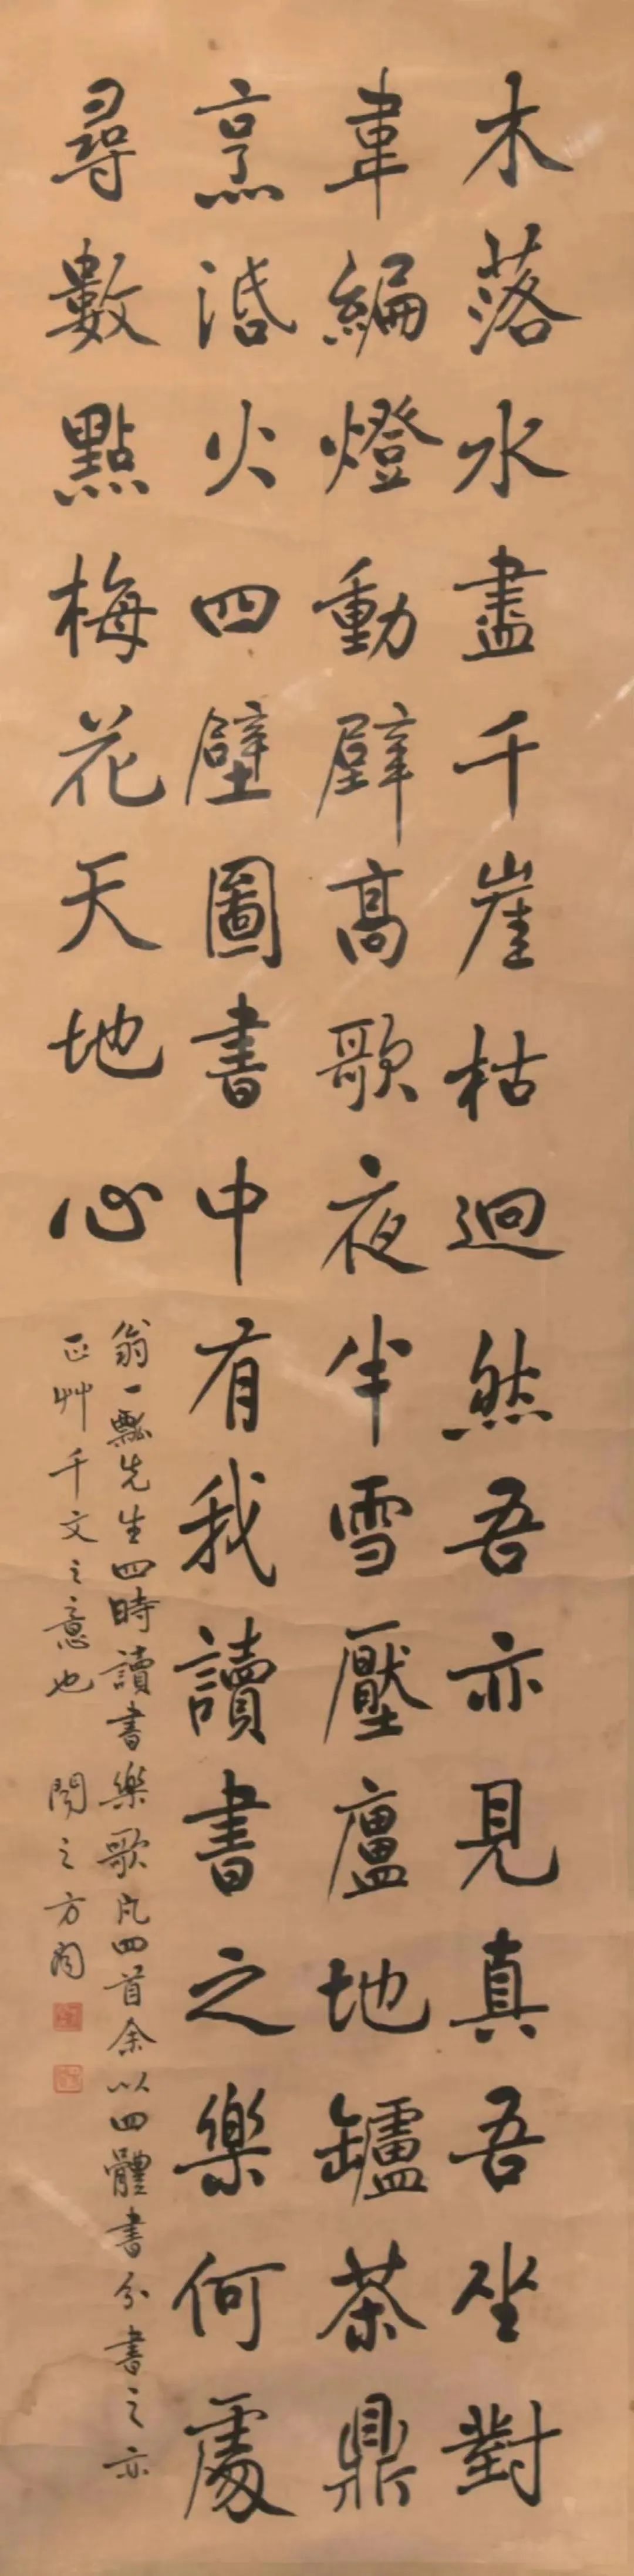 木落水盡千崖枯迥然吾亦見真吾坐對
韋編燈動壁高歌夜半雪壓廬地罏茶鼎
烹活火四壁圖書中有我讀書之樂何處
尋數點梅花天地心
翁一瓢先生四時讀書樂歌凡四首余以四體書分書之亦
正艸千文之意也 之方